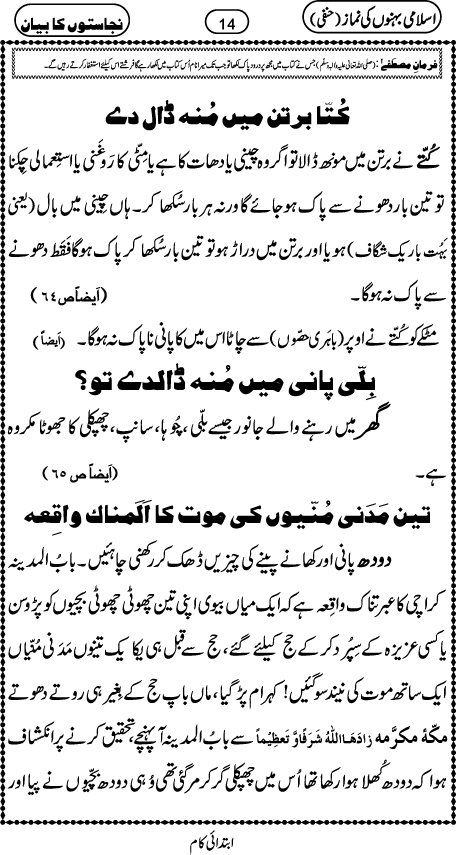 اسلامی بہنوں کی نماز (حنفی)
14
نجاستوں کا بیان
فرمانِ مصطَفٰے: (صلی اللہ تعالیٰ علیہ والہٖ وسلم) جس نے کتاب میں مجھ پر درود پاک لکھا تو جب تک میرا نام اُس کتاب میں لکھا رہے گا فرشتے اس کیلئے استغفار کرتے رہیں گے۔
کُتّا برتن میں مُنہ ڈال دے
کُتّے نے برتن میں مونھ ڈالا تو اگر وہ چینی یا دھات کا ہے یا مِٹّی کا رَوغَنی یا استِعمالی چِکنا
تو تین بار دھونے سے پاک ہو جائے گا ورنہ ہر بار سُکھا کر۔ ہاں چِینی میں بال (یعنی
بَہُت باریک شگاف) ہو یا اور برتن میں دراڑ ہو تو تین بار سُکھا کر پاک ہوگا فقط دھونے
سے پاک نہ ہوگا۔ (اَیضاً ص ٦٤)
مٹکے کو کُتّے نے اوپر (باہَری حصّوں) سے چاٹا اس میں کا پانی ناپاک نہ ہوگا۔ (اَیضاً)
بِلّی پانی میں مُنہ ڈالدے تو؟
گھر میں رہنے والے جانور جیسے بلّی، چُوہا، سانپ، چھپکلی کا جھوٹا مکروہ
ہے۔ (اَیضاً ص ٦٥)
تین مَدَنی مُنّیوں کی موت کا اَلَمناك واقِعه
دودھ پانی اور کھانے پینے کی چیزیں ڈھک کر رکھنی چاہئیں۔ بابُ المدینہ
کراچی کا عبرتناک واقِعہ ہے کہ ایک میاں بیوی اپنی تین چھوٹی چھوٹی بچیوں کو پڑوسن
یا کسی عزیزہ کے سِپُرد کر کے حج کیلئے گئے، حج سے قبل ہی یکایک تینوں مَدَنی مُنّیاں
ایک ساتھ موت کی نیند سو گئیں! کہرام پڑ گیا، ماں باپ حج کے بغیر ہی روتے دھوتے
مکّۂ مکرَّمہ زادَھَا اللہُ شَرَفاً وَّ تَعظِیماً سے بابُ المدینہ آپہنچے، تحقیق کرنے پر انکشاف
ہوا کہ دودھ کُھلا ہوا رکھا تھا اُس میں چھپکلی گر کر مر گئی تھی وُہی دودھ بچّیوں نے پیا اور
ابتدائی کام